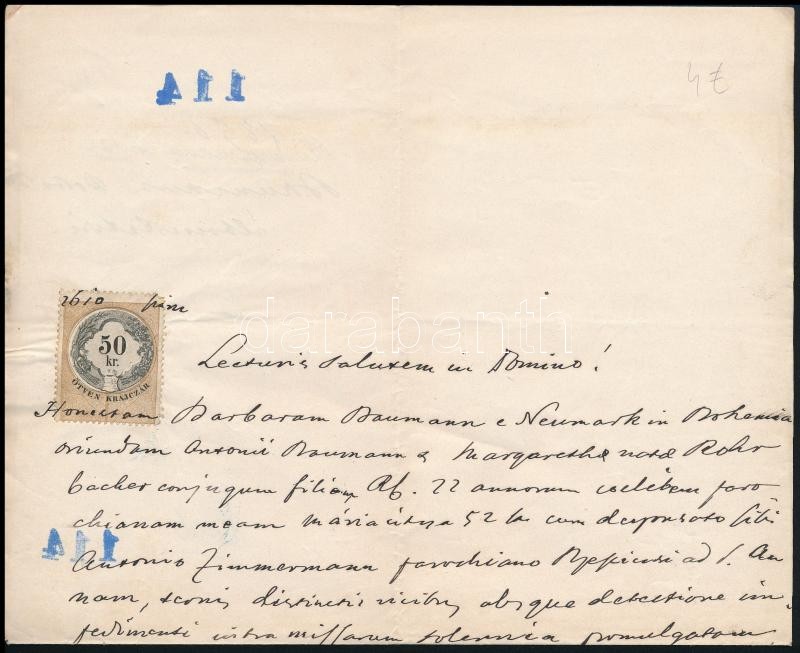 114
4 £
darabanth
50
kr.
ÖTVEN KRAJCZÁR
Lecturis salutem in Domino!
Honestam Barbaram Baumann e Neumark in Bohemia
oriundam Antonii Baumann & Margarethæ natæ Rohr
bacher conjugum filiam, Rk. 22 annorum cælibem paro
chianam meam máriautcza 52 cum desponsato sibi
Antonio Zimmermann parochiano ad S. An
nam, ternis distinctis vicibus absque detectione im
pedimenti intra missarum solemnia promulgatam
114